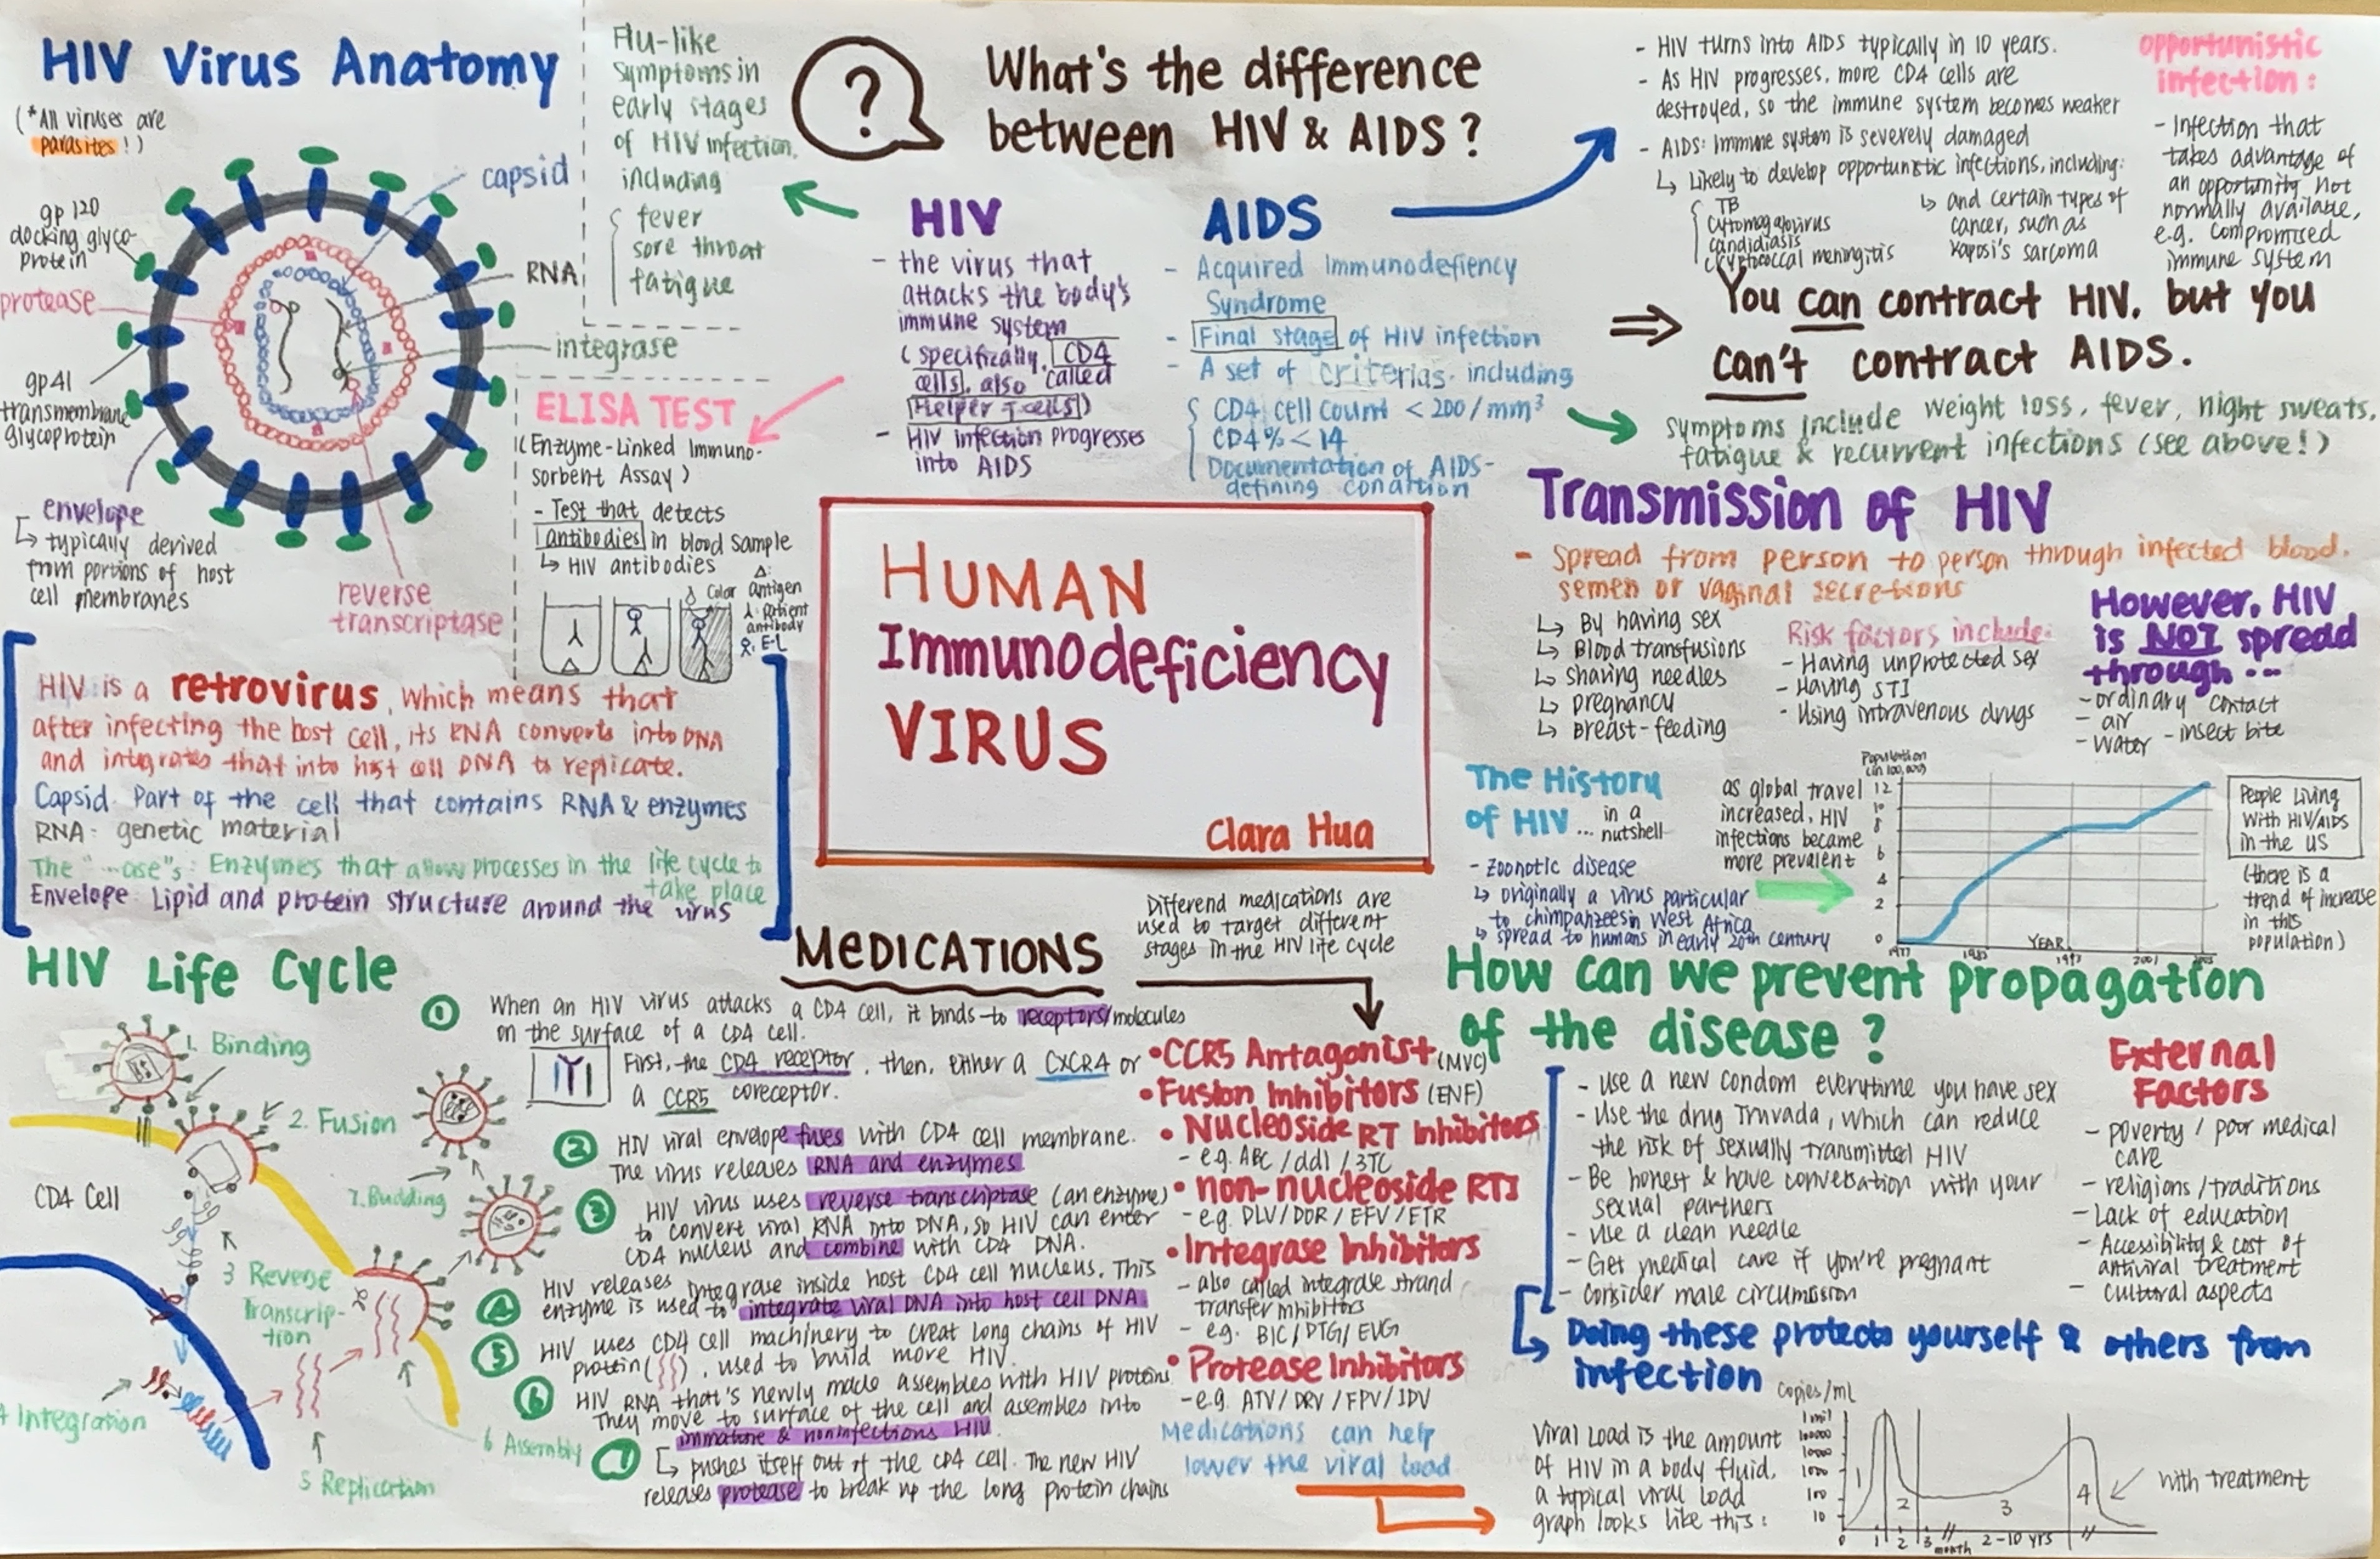 HIV Virus Anatomy
(*All viruses are
parasites!)
capsid
gp 120
docking glyco-
protein
RNA
protease
integrase
gp41
transmembrane
glycoprotein
envelope
↳ typically derived
from portions of host
cell membranes
reverse
transcriptase
Flu-like
symptoms in
early stages
of HIV infection,
including
fever
sore throat
fatigue
ELISA TEST
(Enzyme-Linked Immuno-
sorbent Assay)
- Test that detects
antibodies in blood sample
↳ HIV antibodies
Color
Δ:
antigen
λ: patient
antibody
E-L
HIV is a retrovirus, which means that
after infecting the host cell, its RNA converts into DNA
and integrates that into host cell DNA to replicate.
Capsid: Part of the cell that contains RNA & enzymes
RNA: genetic material
The "...ase"s: Enzymes that allow processes in the life cycle to
take place
Envelope: Lipid and protein structure around the virus
?
What's the difference
between HIV & AIDS?
HIV
- the virus that
attacks the body's
immune system
(specifically, CD4
cells, also called
Helper T cells)
- HIV infection progresses
into AIDS
AIDS
- Acquired Immunodefiency
Syndrome
- Final stage of HIV infection
- A set of criterias, including
CD4 cell count < 200/mm³
CD4% < 14
Documentation of AIDS-
defining condition
- HIV turns into AIDS typically in 10 years.
- As HIV progresses, more CD4 cells are
destroyed, so the immune system becomes weaker
- AIDS: Immune system is severely damaged
↳ Likely to develop opportunistic infections, including:
TB
Cytomegalovirus
candidiasis
cryptococcal meningitis
↳ and certain types of
cancer, such as
Kaposi's sarcoma
opportunistic
infection:
- Infection that
takes advantage of
an opportunity not
normally available,
e.g. compromised
immune system
⇒ You can contract HIV, but you
can't contract AIDS.
symptoms include weight loss, fever, night sweats,
fatigue & recurrent infections (see above!)
HUMAN
Immunodeficiency
VIRUS
Clara Hua
Transmission of HIV
- Spread from person to person through infected blood,
semen or vaginal secretions
↳ By having sex
↳ Blood transfusions
↳ sharing needles
↳ pregnancy
↳ Breast-feeding
Risk factors include:
- Having unprotected sex
- Having STI
- Using intravenous drugs
However, HIV
is NOT spread
through...
- ordinary contact
- air
- water - insect bite
The History
of HIV ... in a
nutshell
- Zoonotic disease
↳ originally a virus particular
to chimpanzees in West Africa
↳ spread to humans in early 20th century
as global travel
increased, HIV
infections became
more prevalent
Population
(in 100,000)
12
10
8
6
4
2
0
1977
YEAR
2001
People Living
With HIV/AIDS
in the US
(there is a
trend of increase
in this
population)
HIV Life Cycle
1. Binding
2. Fusion
7. Budding
CD4 Cell
3 Reverse
Transcrip-
tion
4 Integration
5 Replication
6 Assembly
MEDICATIONS
Differend medications are
used to target different
stages in the HIV life cycle
① When an HIV virus attacks a CD4 cell, it binds to receptors/molecules
on the surface of a CD4 cell.
First, the CD4 receptor, then, either a CXCR4 or
a CCR5 coreceptor.
② HIV viral envelope fuses with CD4 cell membrane.
The virus releases RNA and enzymes
③ HIV virus uses reverse transcriptase (an enzyme)
to convert viral RNA into DNA, so HIV can enter
CD4 nucleus and combine with CD4 DNA.
④ HIV releases integrase inside host CD4 cell nucleus. This
enzyme is used to integrate viral DNA into host cell DNA
⑤ HIV uses CD4 cell machinery to creat long chains of HIV
protein( ), used to build more HIV.
⑥ HIV RNA that's newly made assembles with HIV proteins.
They move to surface of the cell and assembles into
immature & noninfectious HIV
⑦ ↳ pushes itself out of the CD4 cell. The new HIV
releases protease to break up the long protein chains
• CCR5 Antagonist (MVC)
• Fusion Inhibitors (ENF)
• Nucleoside RT Inhibitors
- e.g. ABC / ddI / 3TC
• non-nucleoside RTI
- e.g. DLV/DOR/EFV/ETR
• Integrase Inhibitors
- also called integrase strand
transfer inhibitors
- e.g. BIC/DTG/EVG
• Protease Inhibitors
- e.g. ATV / DRV / FPV / IDV
Medications can help
lower the viral load
How can we prevent propagation
of the disease?
- Use a new condom everytime you have sex
- Use the drug Truvada, which can reduce
the risk of sexually transmitted HIV
- Be honest & have conversation with your
sexual partners
- Use a clean needle
- Get medical care if you're pregnant
- Consider male circumcision
↳ Doing these protects yourself & others from
infection
External
Factors
- poverty / poor medical
care
- religions / traditions
- Lack of education
- Accessibility & cost of
antiviral treatment
- cultural aspects
Viral Load is the amount
of HIV in a body fluid,
a typical viral load
graph looks like this:
copies/ml
1 mil
100000
10000
1000
100
10
0 1 2 3 month 2-10 yrs
1 2 3 4
with treatment